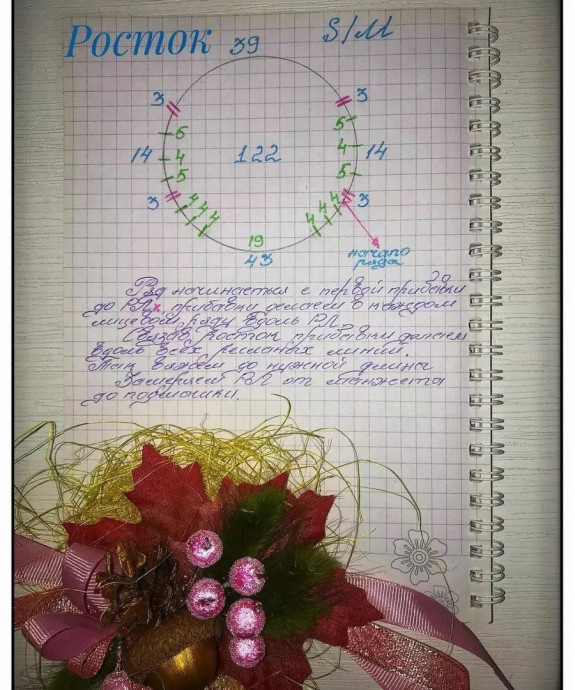 Росток
39
S/M
3
3
5
6
14
4
122
4
14
5
5
3
4 4 4
4 4 4
3
19
43
начало
ряда
Ряд начинается с первой прибавки
до РЛ, прибавки делаем в каждом
лицевом ряду вдоль РЛ.
Связав росток прибавки делаем
вдоль всех регланых линий.
Так вяжем до нужной длины
Замеряем РЛ от манжета
до подмышки.